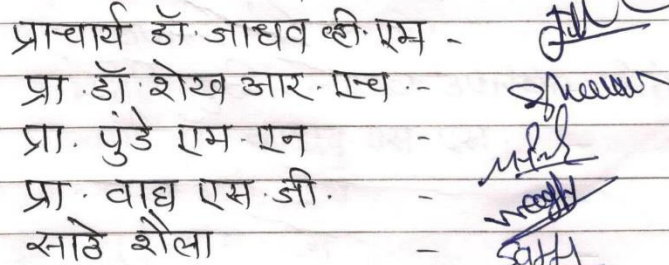 प्राचार्य डॉ. जाधव व्ही. एम -
प्रा. डॉ. शेख आर. एच. -
प्रा. पुंडे एम एन -
प्रा. वाघ एस. जी. -
साठे शैला -